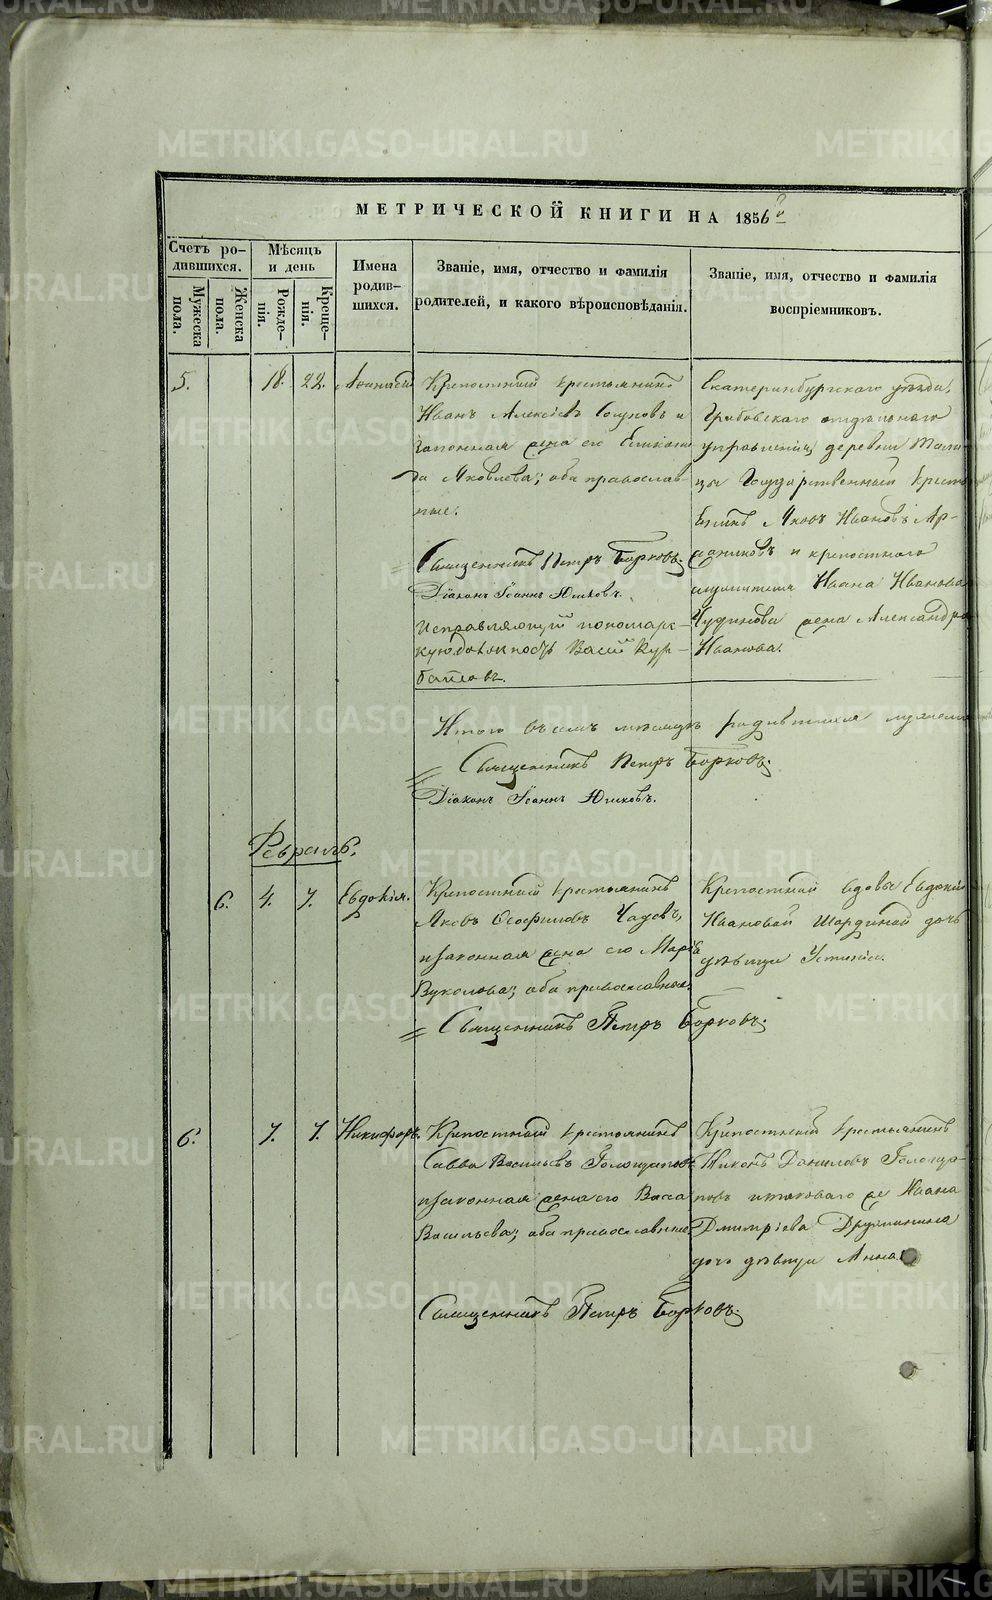 МЕТРИЧЕСКОЙ КНИГИ НА 1856
Счетъ ро-
дившихся.
Мужеска
пола.
Женска
пола.
Мѣсяцъ
и день
Рожде-
нія.
Креще-
нія.
Имена
родив-
шихся.
Званіе, имя, отчество и фамилія
родителей, и какого вѣроисповѣданія.
Званіе, имя, отчество и фамилія
воспріемниковъ.
5. 18. 22. Аѳанасій
Крѣпостный крестьянинъ
Иванъ Алексѣевъ и
законная жена его
Яковлева; оба православ-
ные.
Священникъ Петръ Борковъ.
Діаконъ Іоаннъ Юшковъ.
Исправляющій пономар-
скую должность Васи Кур-
батовъ.
Екатеринбургскаго уѣзда,
Гробовскаго отдѣльнаго
управленія, деревни Тали-
цы Государственный крестья
нинъ Яковъ Ивановъ Ар-
и крѣпостнаго
Ивана Иванова
Чудинова жена Александра
Иванова.
Итого въ семъ мѣсяцѣ родившихся
Священникъ Петръ Борковъ.
Діаконъ Іоаннъ Юшковъ.
Февраль.
6. 4. 7. Евдокія.
Крѣпостный крестьянинъ
Яковъ Ѳеофиловъ
и законная жена его Марія
Вуколова; оба православные.
Священникъ Петръ Борковъ.
Крѣпостной вдовы Евдокіи
Ивановой Шардиной дочь
дѣвица Устинія.
6. 7. 7. Никифоръ.
Крѣпостный крестьянинъ
Савва Васильевъ Голощаповъ
и законная жена его Васса
Васильева; оба православные.
Крѣпостный крестьянинъ
Никонъ Даниловъ Голоща-
повъ и таковаго же Ивана
Дмитріева Дружинина
дочь дѣвица Анна.
Священникъ Петръ Борковъ.
METRIKI.GASO-URAL.RU